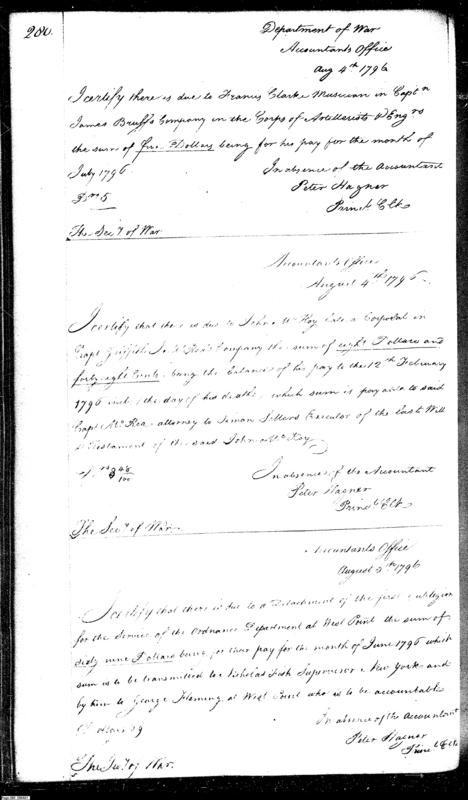 200.
Department of War
Accountants Office
Aug 4th 1796
I certify there is due to Francis Clarke Musician in Captn
James Bruffs Company in the Corps of Artillerists & Engrs
the sum of five Dollars being for his pay for the month of
July 1796
In absence of the Accountant
Peter Hagner
Prinl Clk
Drs 5
The Secy of War
Accountants Office
August 4th 1796.
I certify that there is due to John McKoy late a Corporal in
Capt Griffith Jno McRea's Company the sum of eight Dollars and
forty eight Cents being the balance of his pay to the 12th February
1796 the day of his death, which sum is payable to said
Capt McRea attorney to Sellers Executor of the last Will
& Testament of the said John McKoy
In absence of the Accountant
Peter Hagner
Prinl Clk
8 48/100
The Secy of War.
Accountants Office
August 5th 1796
I certify that there is due to a Detachment of the first
for the Service of the Ordnance Department at West Point the sum of
sixty nine Dollars being for their pay for the month of June 1796 which
sum is to be transmitted to Nicholas Fish Supervisor New York and
by him to George Fleming at West Point who is to be accountable
In absence of the Accountant
Dollars 69
Peter Hagner
Prinl Clk
The Secy of War.